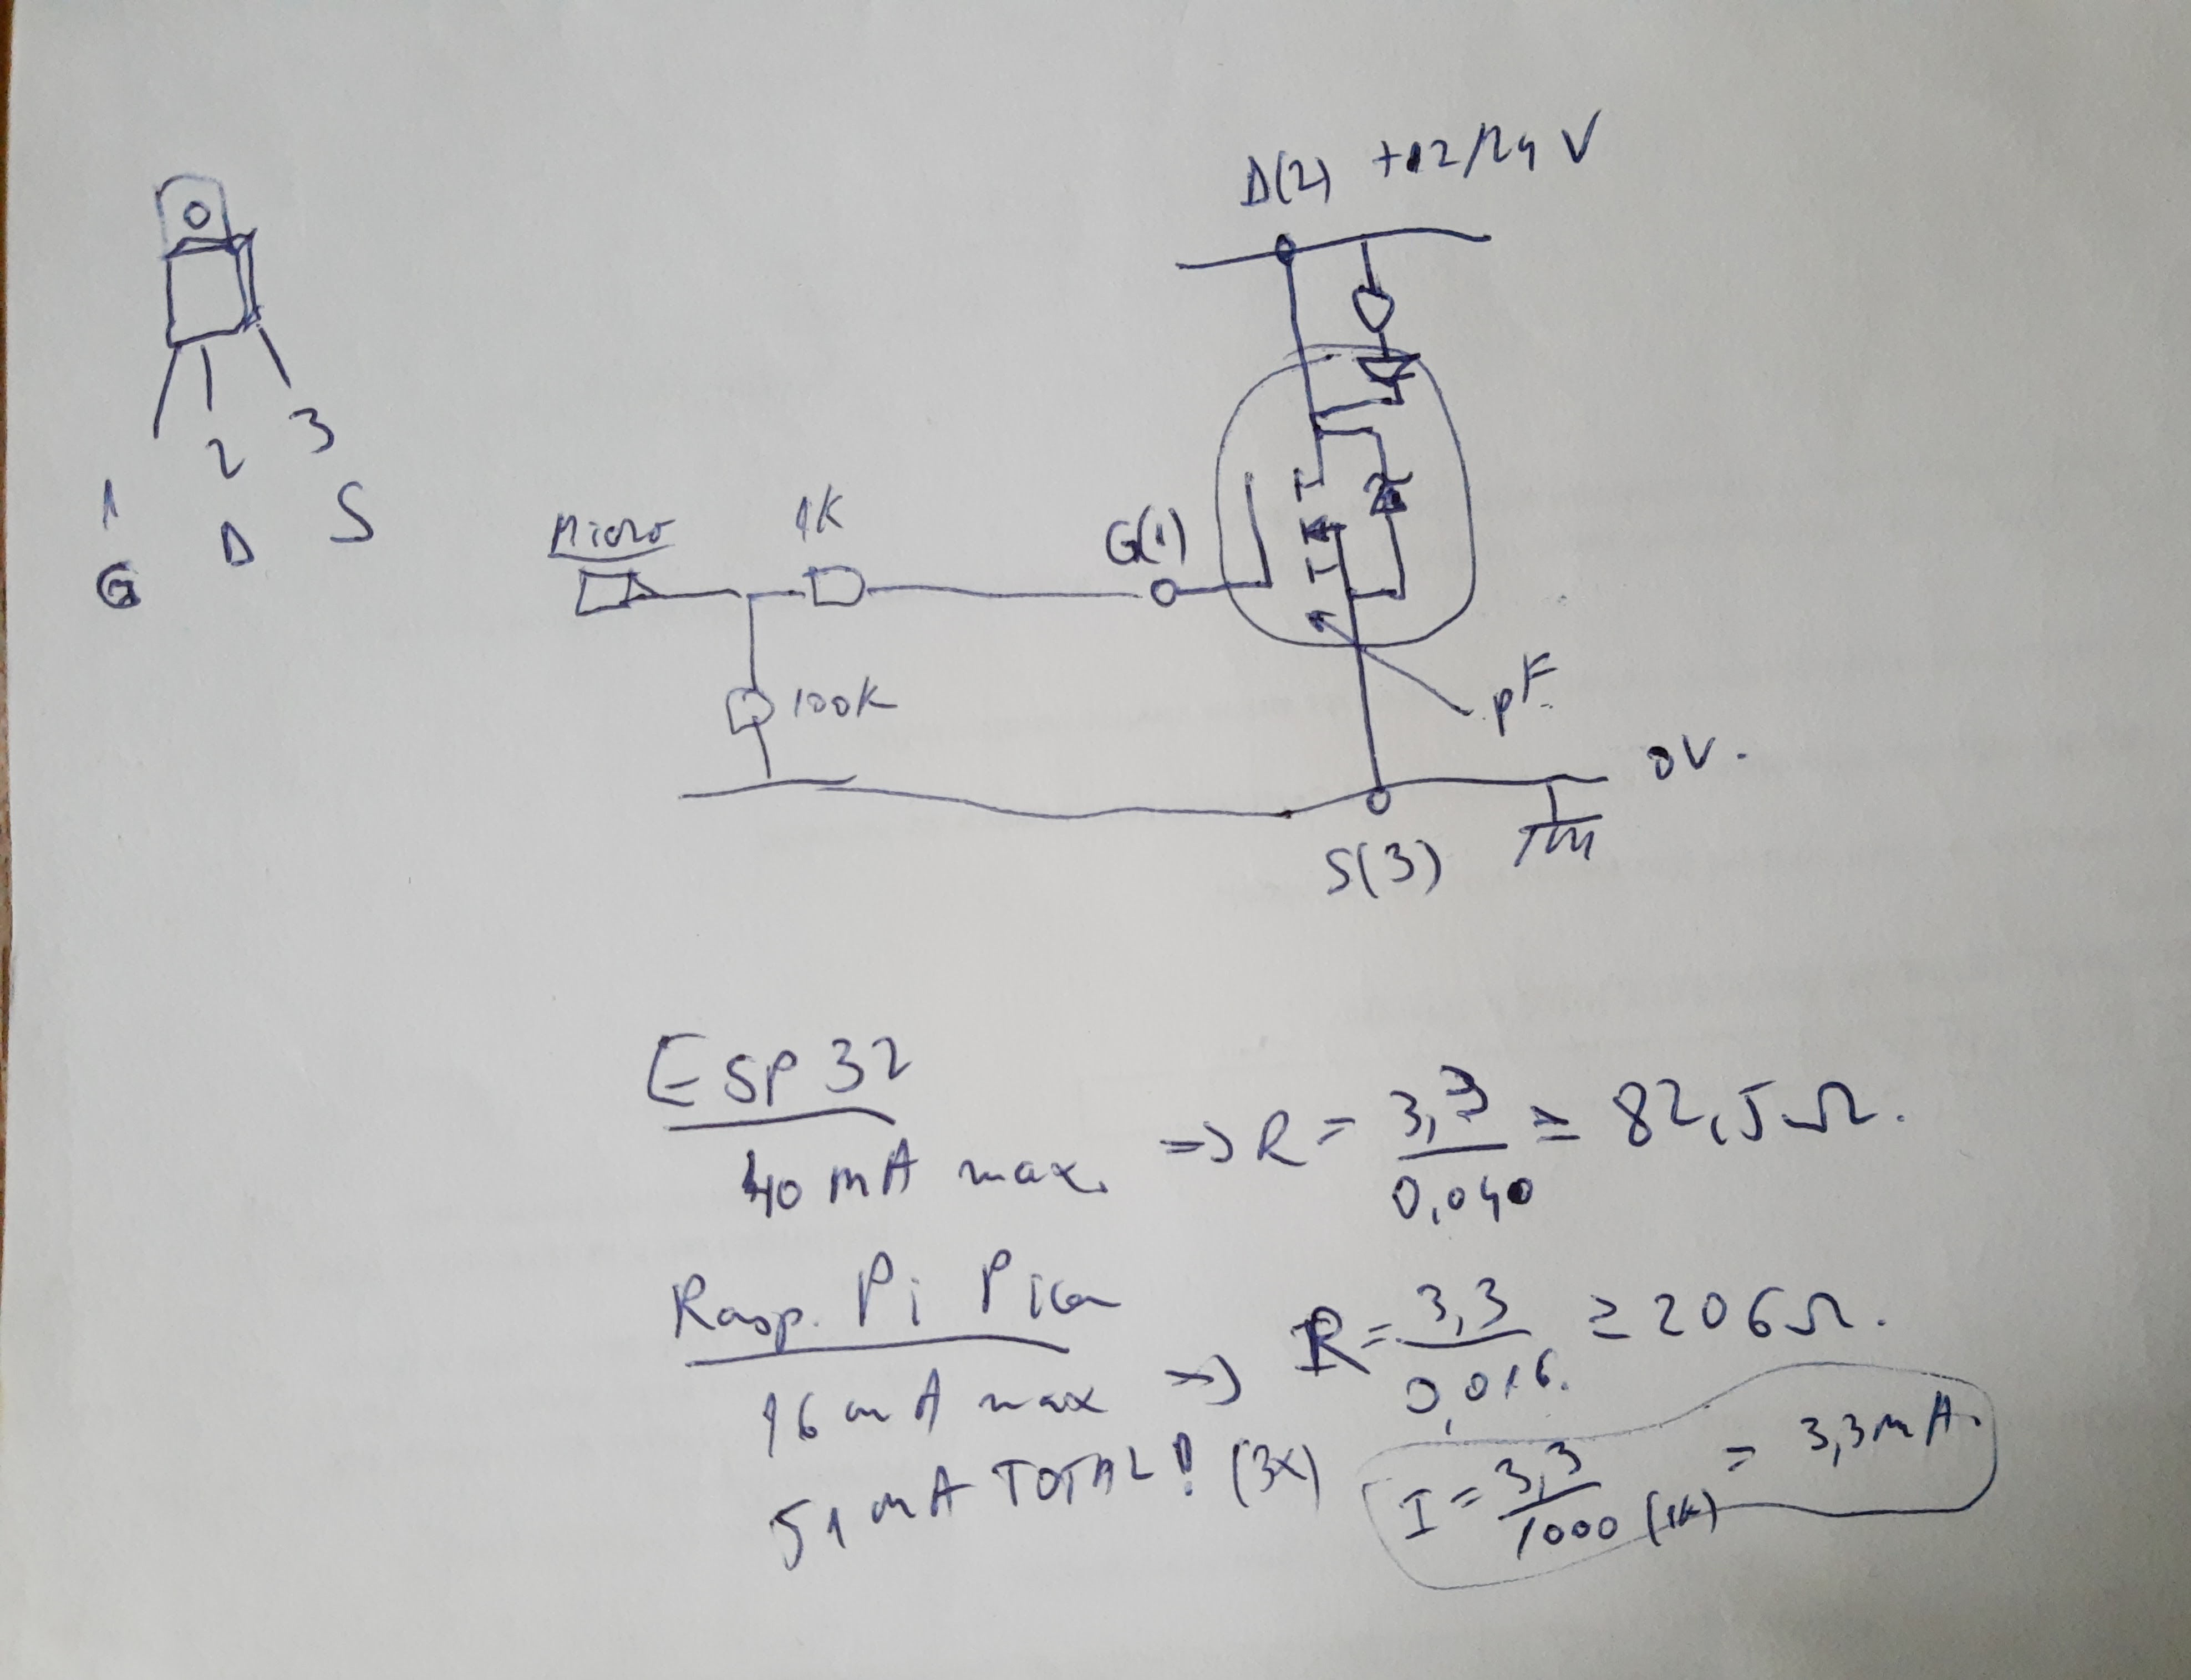 D(2) +12/24 V
1 2 3
G D S
Micro
1K
G(1)
100K
pF
0V.
S(3)
ESP32
40 mA max. => R = 3,3 / 0,040 ≅ 82,5 Ω.
Rasp. Pi Pico
16 mA max => R = 3,3 / 0,016. ≥ 206 Ω.
51 mA TOTAL! (3x)
I = 3,3 / 1000 (1K) = 3,3 mA.